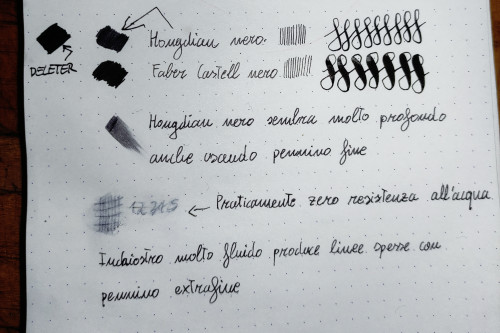 Hongdian nero:
DELETER
Faber Castell nero
Hongdian nero sembra molto profondo
anche usando pennino fine
← Praticamente zero resistenza all'acqua
Inchiostro molto fluido produce linee spesse con
pennino extrafine